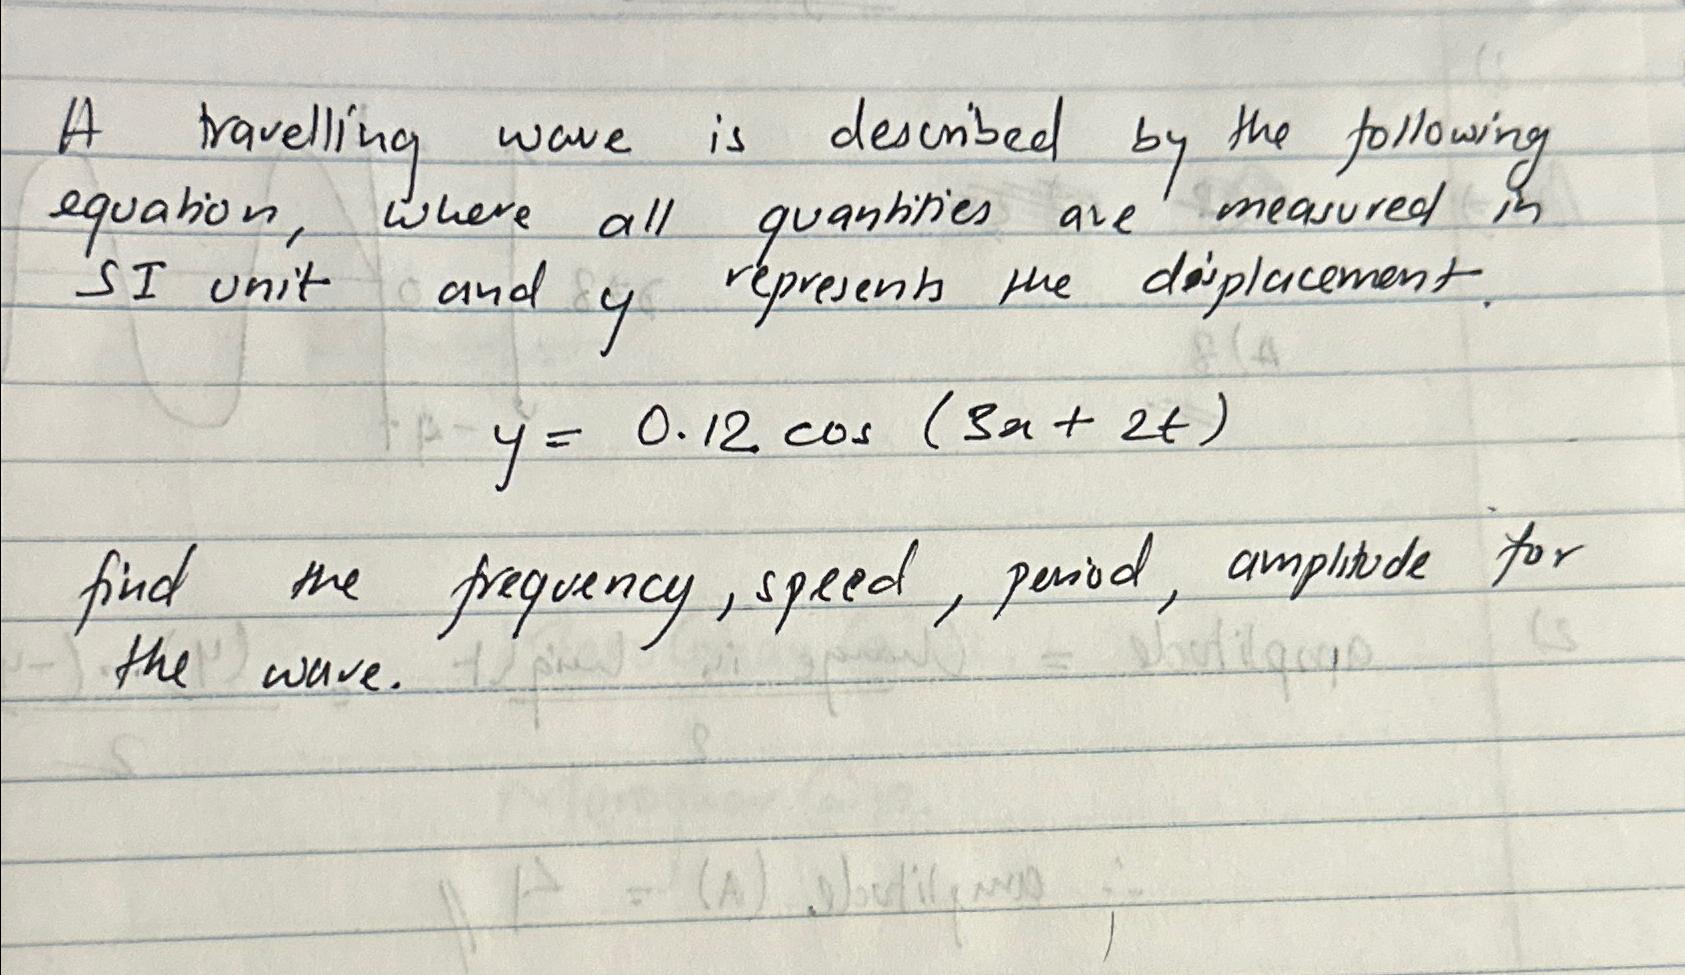 A travelling wave is described by the following
equation, where all quantities are measured in
SI unit and y represents the displacement.
y = 0.12 cos (3x + 2t)
find the frequency, speed, period, amplitude for
the wave.